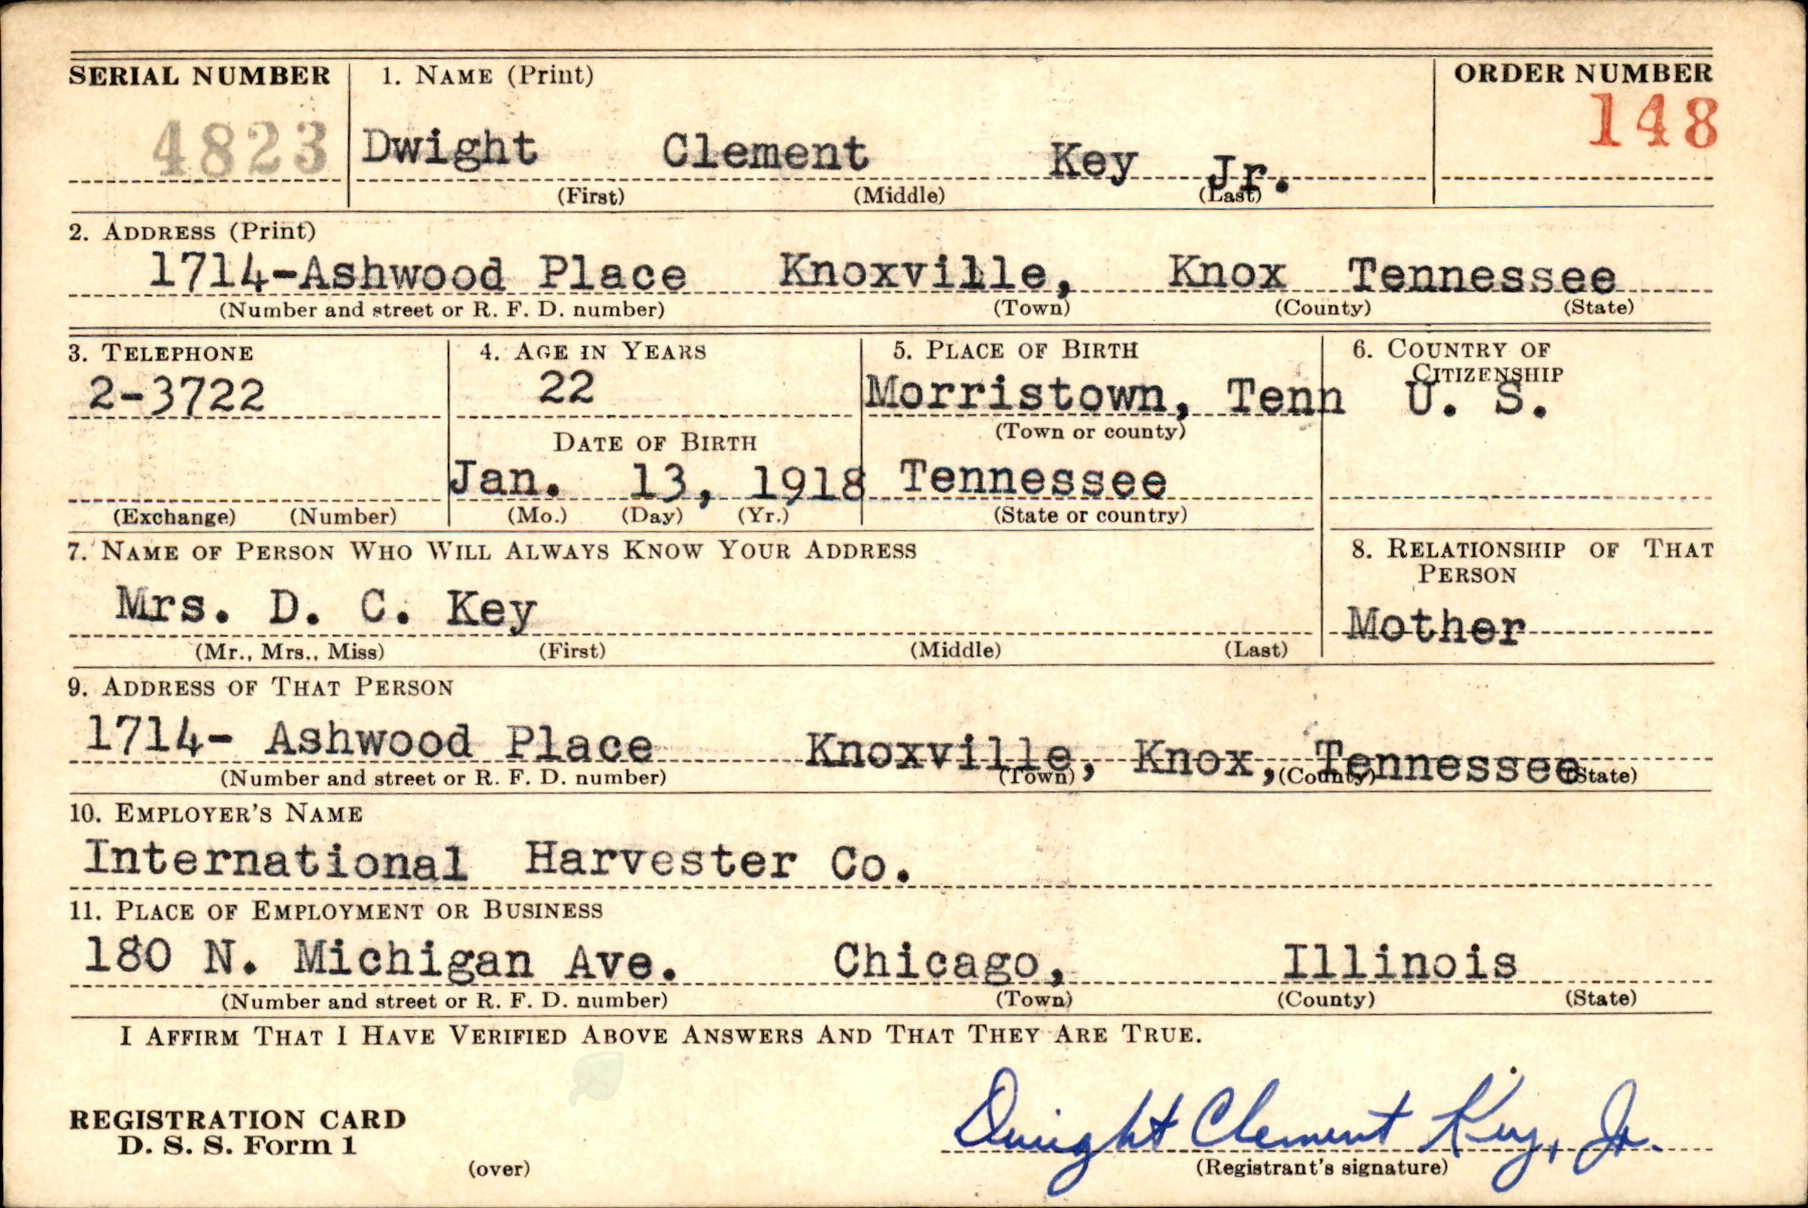 SERIAL NUMBER 1. NAME (Print) ORDER NUMBER
4823 Dwight Clement Key Jr. 148
(First) (Middle) (Last)
2. ADDRESS (Print)
1714-Ashwood Place Knoxville, Knox Tennessee
(Number and street or R. F. D. number) (Town) (County) (State)
3. TELEPHONE 4. AGE IN YEARS 5. PLACE OF BIRTH 6. COUNTRY OF CITIZENSHIP
2-3722 22 Morristown, Tenn U. S.
(Town or county)
DATE OF BIRTH
Jan. 13, 1918 Tennessee
(Exchange) (Number) (Mo.) (Day) (Yr.) (State or country)
7. NAME OF PERSON WHO WILL ALWAYS KNOW YOUR ADDRESS 8. RELATIONSHIP OF THAT PERSON
Mrs. D. C. Key Mother
(Mr., Mrs., Miss) (First) (Middle) (Last)
9. ADDRESS OF THAT PERSON
1714- Ashwood Place Knoxville, Knox, Tennessee
(Number and street or R. F. D. number) (Town) (County) (State)
10. EMPLOYER'S NAME
International Harvester Co.
11. PLACE OF EMPLOYMENT OR BUSINESS
180 N. Michigan Ave. Chicago, Illinois
(Number and street or R. F. D. number) (Town) (County) (State)
I AFFIRM THAT I HAVE VERIFIED ABOVE ANSWERS AND THAT THEY ARE TRUE.
REGISTRATION CARD
D. S. S. Form 1 Dwight Clement Key, Jr.
(over) (Registrant's signature)